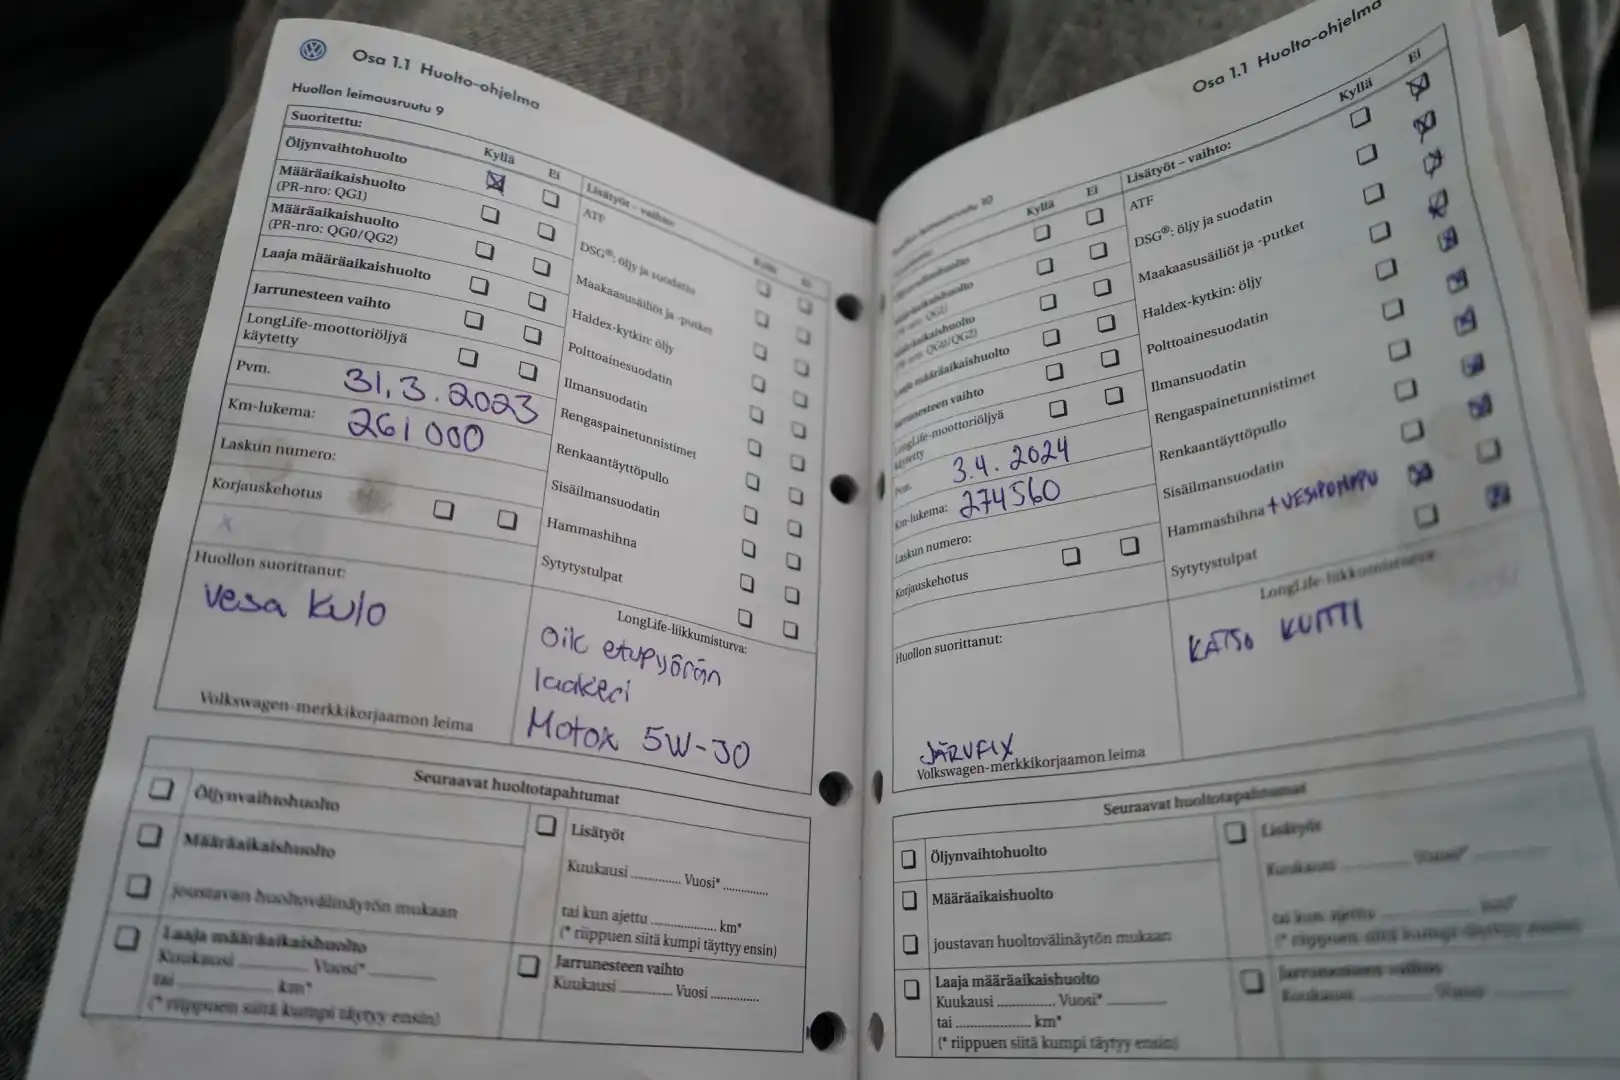 Osa 1.1 Huolto-ohjelma
Huollon leimausruutu 9
Suoritettu:
Kyllä Ei
Öljynvaihtohuolto
Määräaikaishuolto
(PR-nro: QG1)
Määräaikaishuolto
(PR-nro: QG0/QG2)
Laaja määräaikaishuolto
Jarrunesteen vaihto
LongLife-moottoriöljyä
käytetty
Pvm. 31.3.2023
Km-lukema: 261 000
Laskun numero:
Korjauskehotus
x
Huollon suorittanut:
Vesa Kulo
Volkswagen-merkkikorjaamon leima
Lisätyöt – vaihto:
Kyllä Ei
ATF
DSG®: öljy ja suodatin
Maakaasusäiliöt ja -putket
Haldex-kytkin: öljy
Polttoainesuodatin
Ilmansuodatin
Rengaspainetunnistimet
Renkaantäyttöpullo
Sisäilmansuodatin
Hammashihna
Sytytystulpat
LongLife-liikkumisturva:
Oik etupyörän
laakeri
Motox 5W-30
Seuraavat huoltotapahtumat
Öljynvaihtohuolto
Määräaikaishuolto
joustavan huoltovälinäytön mukaan
Laaja määräaikaishuolto
Kuukausi ............ Vuosi* ............
tai ............ km*
(* riippuen siitä kumpi täyttyy ensin)
Lisätyöt
Kuukausi ............ Vuosi* ............
tai kun ajettu ............ km*
(* riippuen siitä kumpi täyttyy ensin)
Jarrunesteen vaihto
Kuukausi ............ Vuosi ............
Osa 1.1 Huolto-ohjelma
Huollon leimausruutu 10
Kyllä Ei
Öljynvaihtohuolto
Määräaikaishuolto
(PR-nro: QG1)
Määräaikaishuolto
(PR-nro: QG0/QG2)
Laaja määräaikaishuolto
Jarrunesteen vaihto
LongLife-moottoriöljyä
käytetty
Pvm. 3.4.2024
Km-lukema: 274560
Laskun numero:
Korjauskehotus
Huollon suorittanut:
JÄRVFIX
Volkswagen-merkkikorjaamon leima
Lisätyöt – vaihto:
Kyllä Ei
ATF
DSG®: öljy ja suodatin
Maakaasusäiliöt ja -putket
Haldex-kytkin: öljy
Polttoainesuodatin
Ilmansuodatin
Rengaspainetunnistimet
Renkaantäyttöpullo
Sisäilmansuodatin
Hammashihna + VESIPUMPPU
Sytytystulpat
LongLife-liikkumisturva:
KATSO KUITTI
Seuraavat huoltotapahtumat
Öljynvaihtohuolto
Määräaikaishuolto
joustavan huoltovälinäytön mukaan
Laaja määräaikaishuolto
Kuukausi ............ Vuosi* ............
tai ............ km*
(* riippuen siitä kumpi täyttyy ensin)
Lisätyöt
Kuukausi ............ Vuosi* ............
tai kun ajettu ............ km*
(* riippuen siitä kumpi täyttyy ensin)
Jarrunesteen vaihto
Kuukausi ............ Vuosi ............